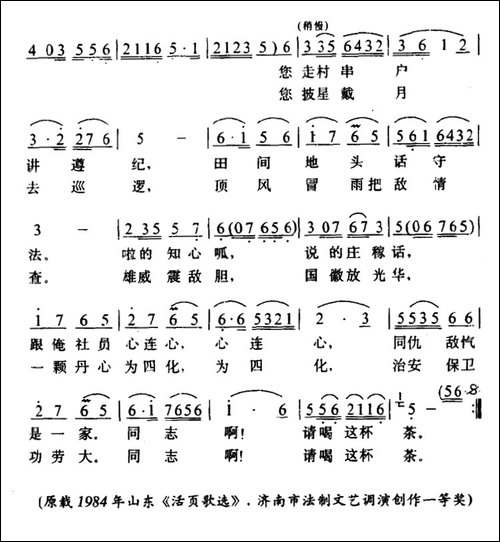 (稍慢)
4 03 5 5 6 | 2116 5·1 | 2123 5) 6 | 3 35 6432 | 3 6 1 2 |
您 走村 串 户
您 披星 戴 月
3·2 2 7 6 | 5 - | 6·1 5 6 | 1 7 6 5 | 5 6 1 6432 |
讲 遵 纪, 田 间 地 头 话 守
去 巡 逻, 顶 风 冒 雨把 敌 情
3 - | 2 35 5 7 | 6 (07 65 6) | 3 07 67 3 | 5 (06 765) |
法。 啦的 知 心 呱, 说 的庄 稼 话,
查。 雄威 震敌 胆, 国 徽放 光 华,
1 7 6 5 | 2 7 6 5 | 6·6 5321 | 2 · 3 | 5535 6 6 |
跟 俺 社 员 心 连 心, 心 连 心, 同仇 敌忾
一 颗 丹 心 为 四 化, 为 四 化, 治安 保卫
2 7 6 5 | 6·1 7656 | 1 · 6 | 5 5 6 2116 | 5 - (56 :‖
是 一 家。 同 志 啊! 请喝 这杯 茶。
功 劳 大。 同 志 啊! 请喝 这杯 茶。
(原载1984年山东《活页歌选》,济南市法制文艺调演创作一等奖)